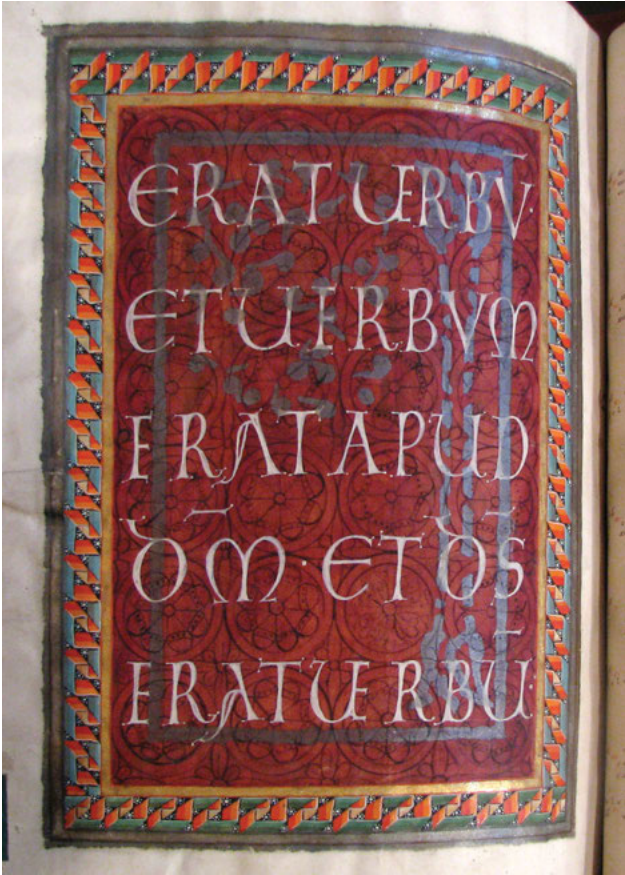 ERAT UERBV̅·
ET UERBVM
ERAT APUD
D̅M̅·ET D̅S̅
ERAT UERBU̅·